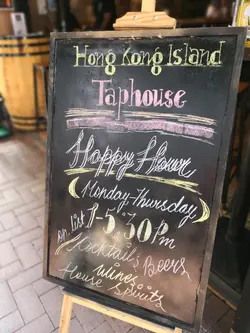 Hong Kong Island
Taphouse
Happy Hour
Monday-Thursday
5:30 Pm
Cocktails Beers
Wines
House Spirits